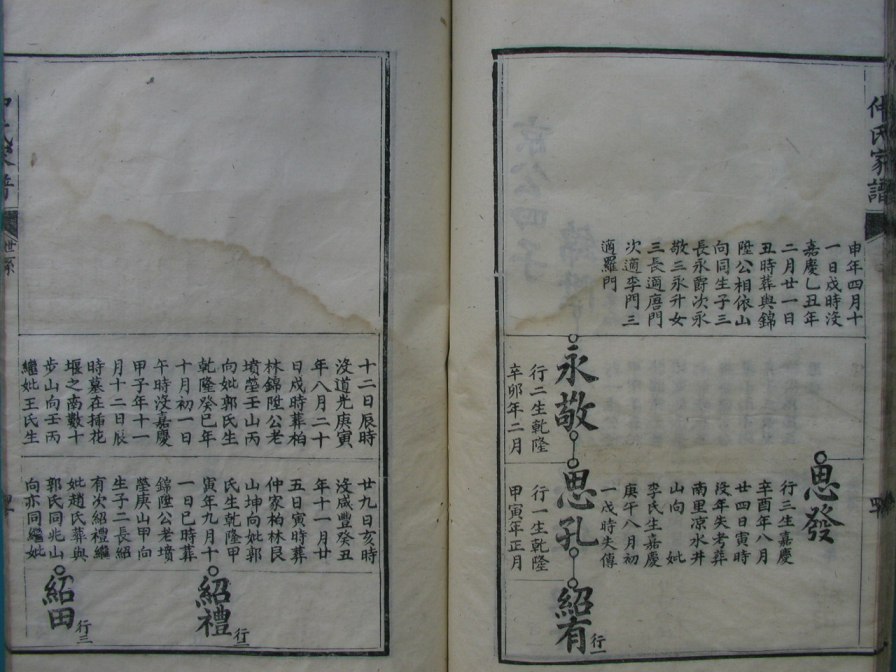 仲氏家譜
申年四月十
一日戌時沒
嘉慶乙丑年
二月廿一日
丑時葬與錦
陞公相依山
向同生子三
長永爵次永
敬三永升女
三長適唐門
次適李門三
適羅門
永敬
行二生乾隆
辛卯年二月
思發
行三生嘉慶
辛酉年八月
廿四日寅時
沒年失考葬
南里凉水井
山向 妣
李氏生嘉慶
庚午八月初
一戌時失傳
思孔
行一生乾隆
甲寅年正月
紹有
行一
十二日辰時
沒道光庚寅
年八月二十
日戌時葬柏
林錦陞公老
墳塋壬山丙
向妣郭氏生
乾隆癸巳年
十月初一日
午時沒嘉慶
甲子年十一
月十二日辰
時墓在插花
堰之南數十
步山向壬丙
繼妣王氏生
廿九日亥時
沒咸豐癸丑
年十一月廿
五日寅時葬
仲家柏林艮
山坤向妣郭
氏生乾隆甲
寅年九月十
一日巳時葬
錦陞公老墳
塋庚山甲向
生子二長紹
有次紹禮繼
妣趙氏葬與
郭氏同兆山
向亦同繼妣
紹禮
行二
紹田
行三
世系